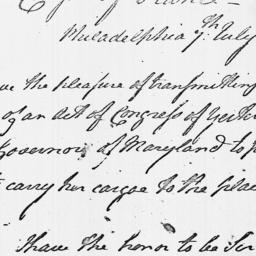 Philadelphia 7th July
the pleasure of transmitting
of an Act of Congress of Yester
Governor of Maryland to p
carry her cargoe to the plac
I have the honor to be Sir